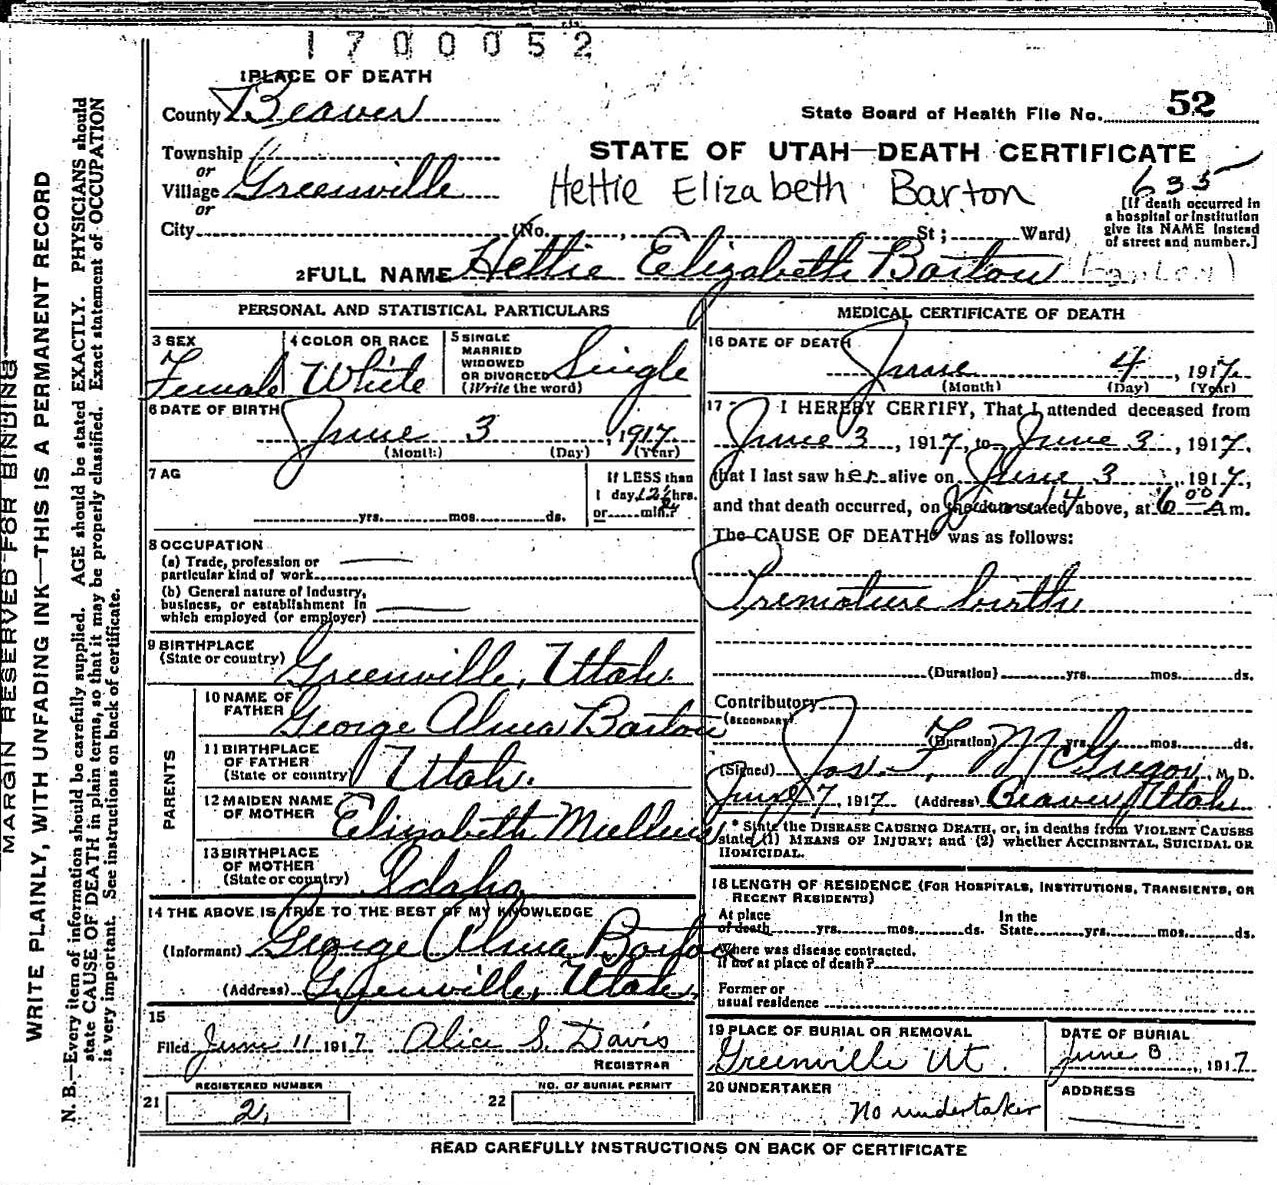 1700052
1 PLACE OF DEATH
County Beaver
State Board of Health File No. 52
Township
or
Village Greenville
or
City (No. , St ; Ward)
STATE OF UTAH—DEATH CERTIFICATE
Hettie Elizabeth Barton
635
[If death occurred in
a hospital or institution
give its NAME instead
of street and number.]
2 FULL NAME Hettie Elizabeth Barton
PERSONAL AND STATISTICAL PARTICULARS
3 SEX
Female
4 COLOR OR RACE
White
5 SINGLE
MARRIED
WIDOWED
OR DIVORCED
(Write the word)
Single
6 DATE OF BIRTH
June 3, 1917
(Month) (Day) (Year)
7 AG
yrs. mos. ds.
If LESS than
1 day, 12½ hrs.
or min.
8 OCCUPATION
(a) Trade, profession or
particular kind of work
(b) General nature of industry,
business, or establishment in
which employed (or employer)
9 BIRTHPLACE
(State or country)
Greenville, Utah.
PARENTS
10 NAME OF
FATHER
George Alma Barton
11 BIRTHPLACE
OF FATHER
(State or country)
Utah.
12 MAIDEN NAME
OF MOTHER
Elizabeth
13 BIRTHPLACE
OF MOTHER
(State or country)
Idaho
14 THE ABOVE IS TRUE TO THE BEST OF MY KNOWLEDGE
(Informant) George Alma Barton
(Address) Greenville, Utah.
15
Filed June 11 1917 Alice S. Davis
REGISTRAR
REGISTERED NUMBER
21 2,
NO. OF BURIAL PERMIT
22
MEDICAL CERTIFICATE OF DEATH
16 DATE OF DEATH
June 4, 1917.
(Month) (Day) (Year)
17 I HEREBY CERTIFY, That I attended deceased from
June 3, 1917, to June 3, 1917.
that I last saw her alive on June 3, 1917,
and that death occurred, on the date stated above, at 6 00 A m.
June 4
The CAUSE OF DEATH was as follows:
Premature birth
(Duration) yrs. mos. ds.
Contributory
(SECONDARY)
(Duration) yrs. mos. ds.
(Signed) Jos. F. McGregor, M. D.
June 7, 1917 (Address) Beaver, Utah.
* State the DISEASE CAUSING DEATH, or, in deaths from VIOLENT CAUSES
state (1) MEANS OF INJURY; and (2) whether ACCIDENTAL, SUICIDAL OR
HOMICIDAL.
18 LENGTH OF RESIDENCE (FOR HOSPITALS, INSTITUTIONS, TRANSIENTS, OR
RECENT RESIDENTS)
At place
of death yrs. mos. ds.
In the
State yrs. mos. ds.
Where was disease contracted,
If not at place of death?
Former or
usual residence
19 PLACE OF BURIAL OR REMOVAL
Greenville Ut.
DATE OF BURIAL
June 8, 1917
20 UNDERTAKER
No undertaker
ADDRESS
READ CAREFULLY INSTRUCTIONS ON BACK OF CERTIFICATE
MARGIN RESERVED FOR BINDING
WRITE PLAINLY, WITH UNFADING INK—THIS IS A PERMANENT RECORD
N. B.—Every item of information should be carefully supplied. AGE should be stated EXACTLY. PHYSICIANS should
state CAUSE OF DEATH in plain terms, so that it may be properly classified. Exact statement of OCCUPATION
is very important. See instructions on back of certificate.